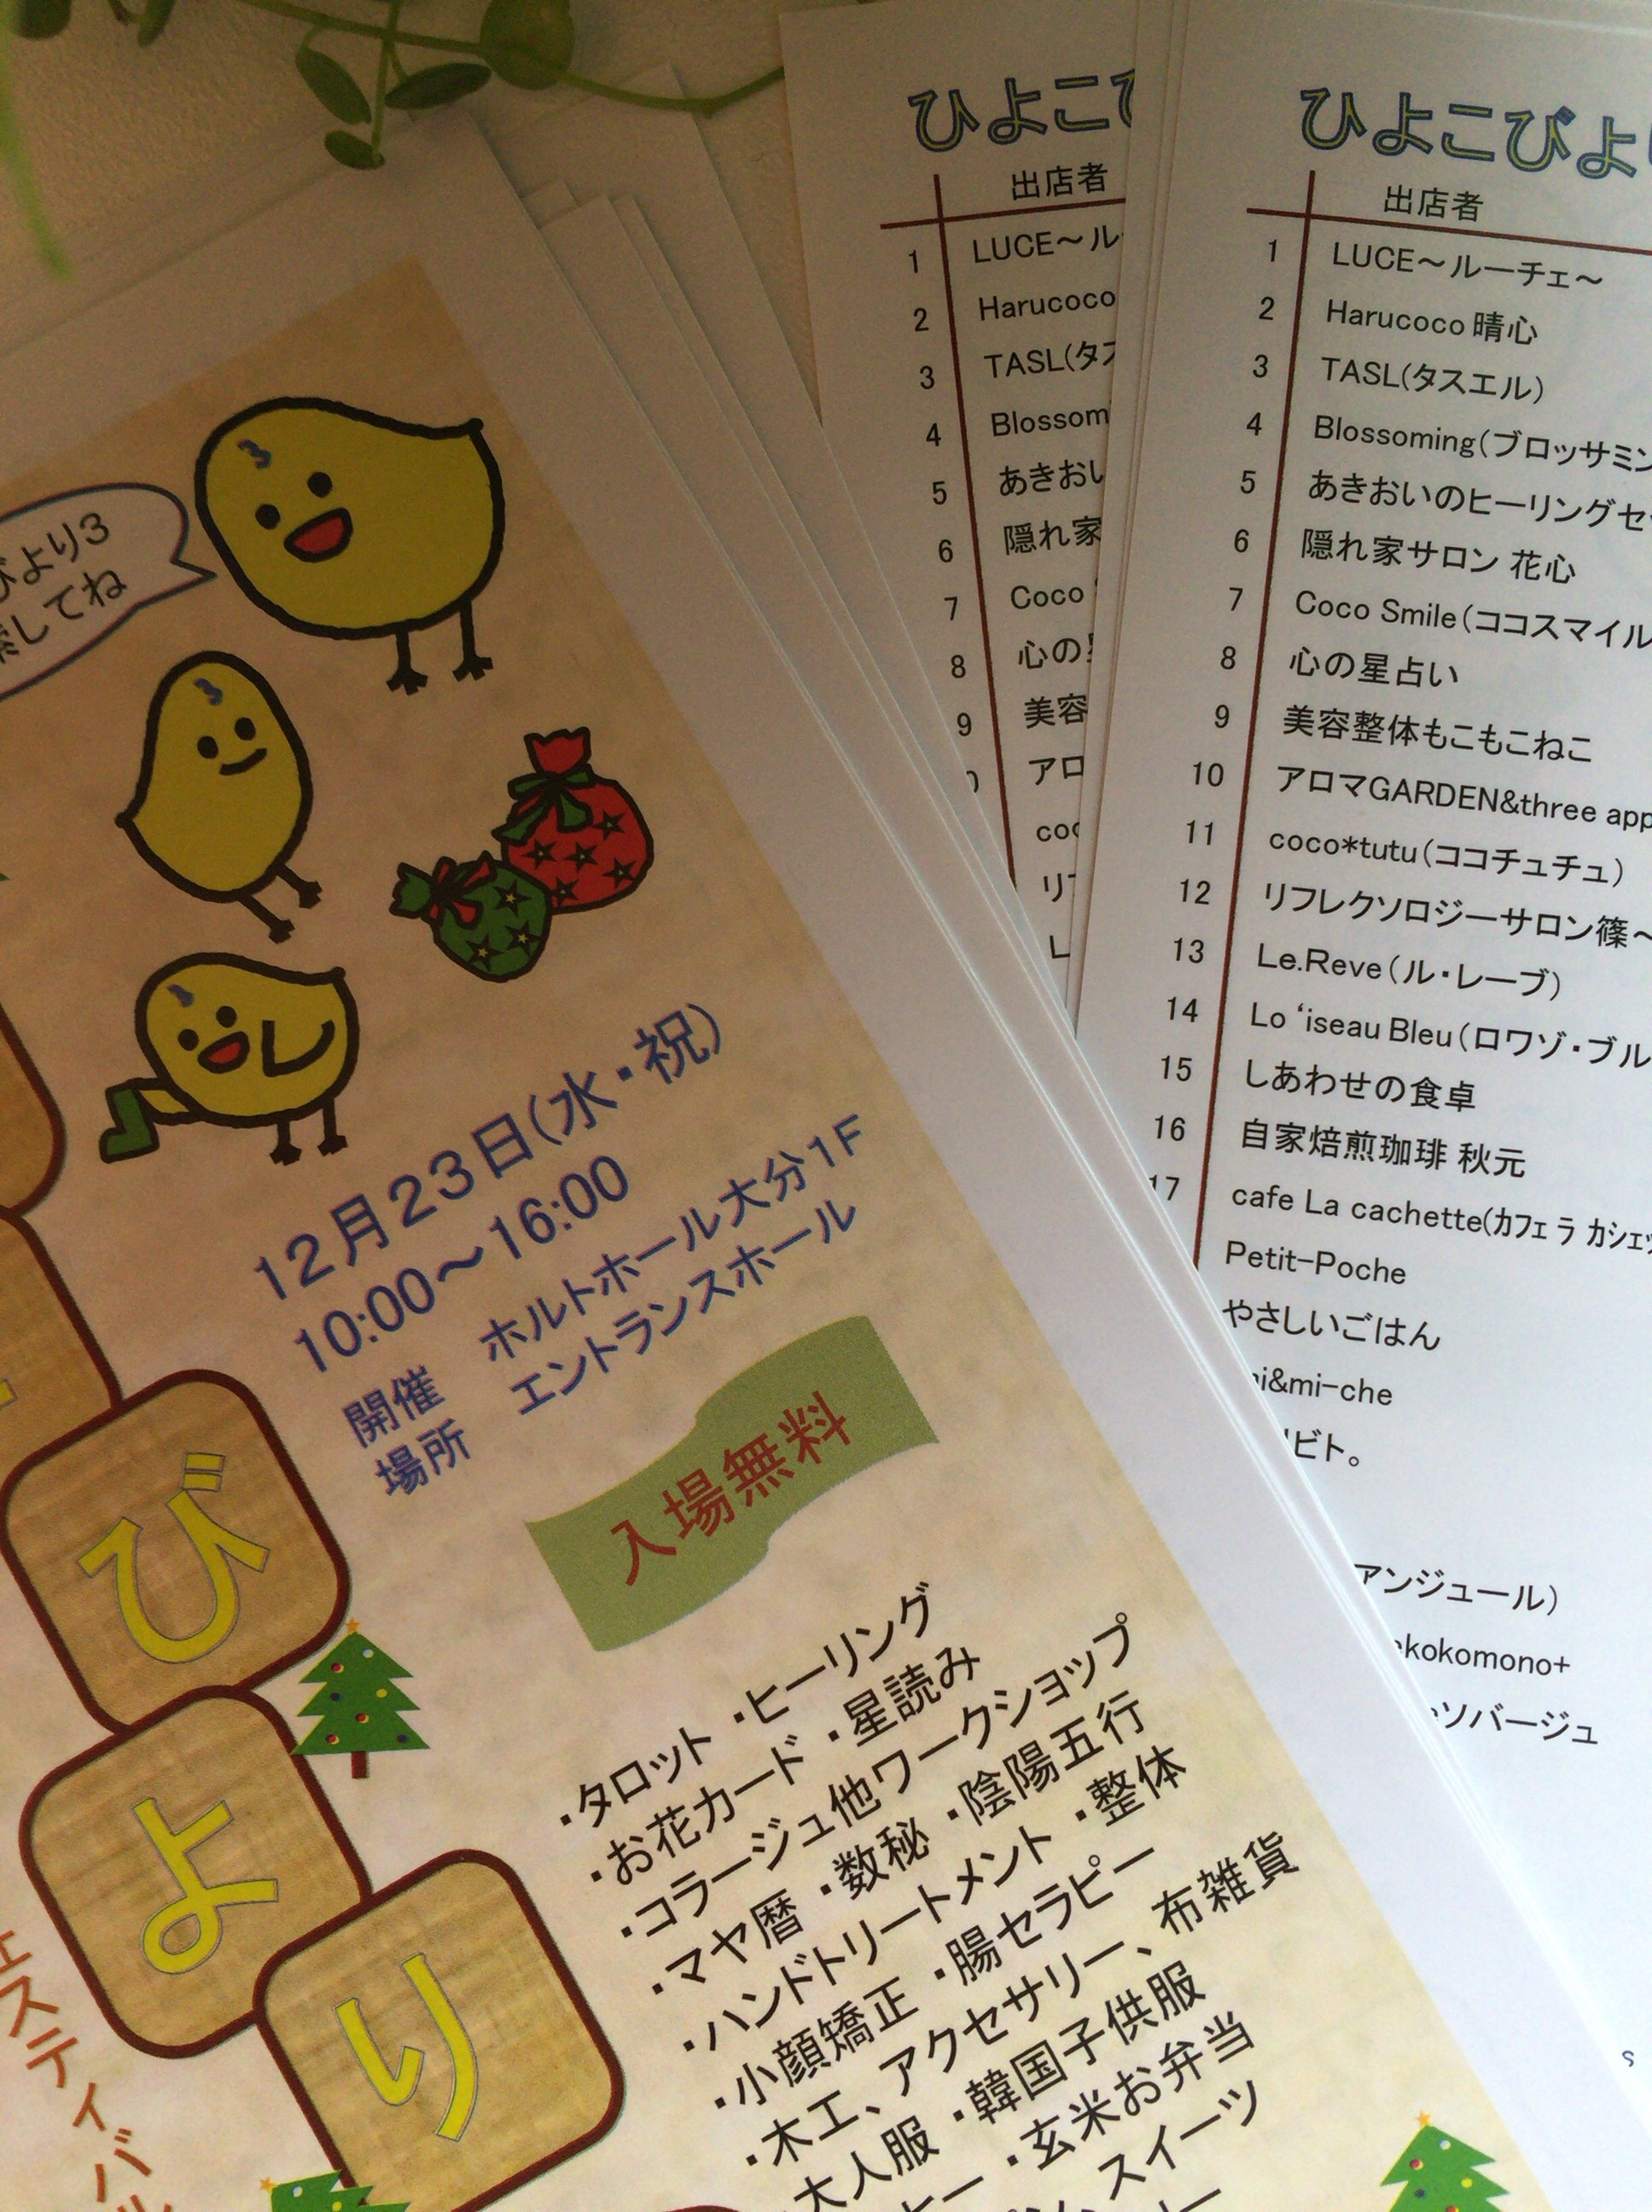 びより3
索してね
12月23日(水・祝)
10:00～16:00
開催場所
ホルトホール大分1F
エントランスホール
入場無料
びより
・タロット ・ヒーリング
・お花カード ・星読み
・コラージュ他ワークショップ
・マヤ暦 ・数秘 ・陰陽五行
・ハンドトリートメント ・整体
・小顔矯正 ・腸セラピー
・木工、アクセサリー、布雑貨
大人服 ・韓国子供服
・玄米お弁当
スイーツ
ェスティバル
ひよこび
出店者
1 LUCE～ル
2 Harucoco
3 TASL(タス
4 Blossom
5 あきおい
6 隠れ家
7 Coco
8 心の
9 美容
アロ
coc
リフ
L
ひよこびよ
出店者
1 LUCE～ルーチェ～
2 Harucoco 晴心
3 TASL(タスエル)
4 Blossoming(ブロッサミン
5 あきおいのヒーリングセ
6 隠れ家サロン 花心
7 Coco Smile(ココスマイル
8 心の星占い
9 美容整体もこもこねこ
10 アロマGARDEN&three app
11 coco*tutu(ココチュチュ)
12 リフレクソロジーサロン篠～
13 Le.Reve(ル・レーブ)
14 Lo ‘iseau Bleu(ロワゾ・ブル
15 しあわせの食卓
16 自家焙煎珈琲 秋元
17 cafe La cachette(カフェ ラ カシェッ
Petit-Poche
やさしいごはん
i&mi-che
ビト。
アンジュール)
kokomono+
ソバージュ